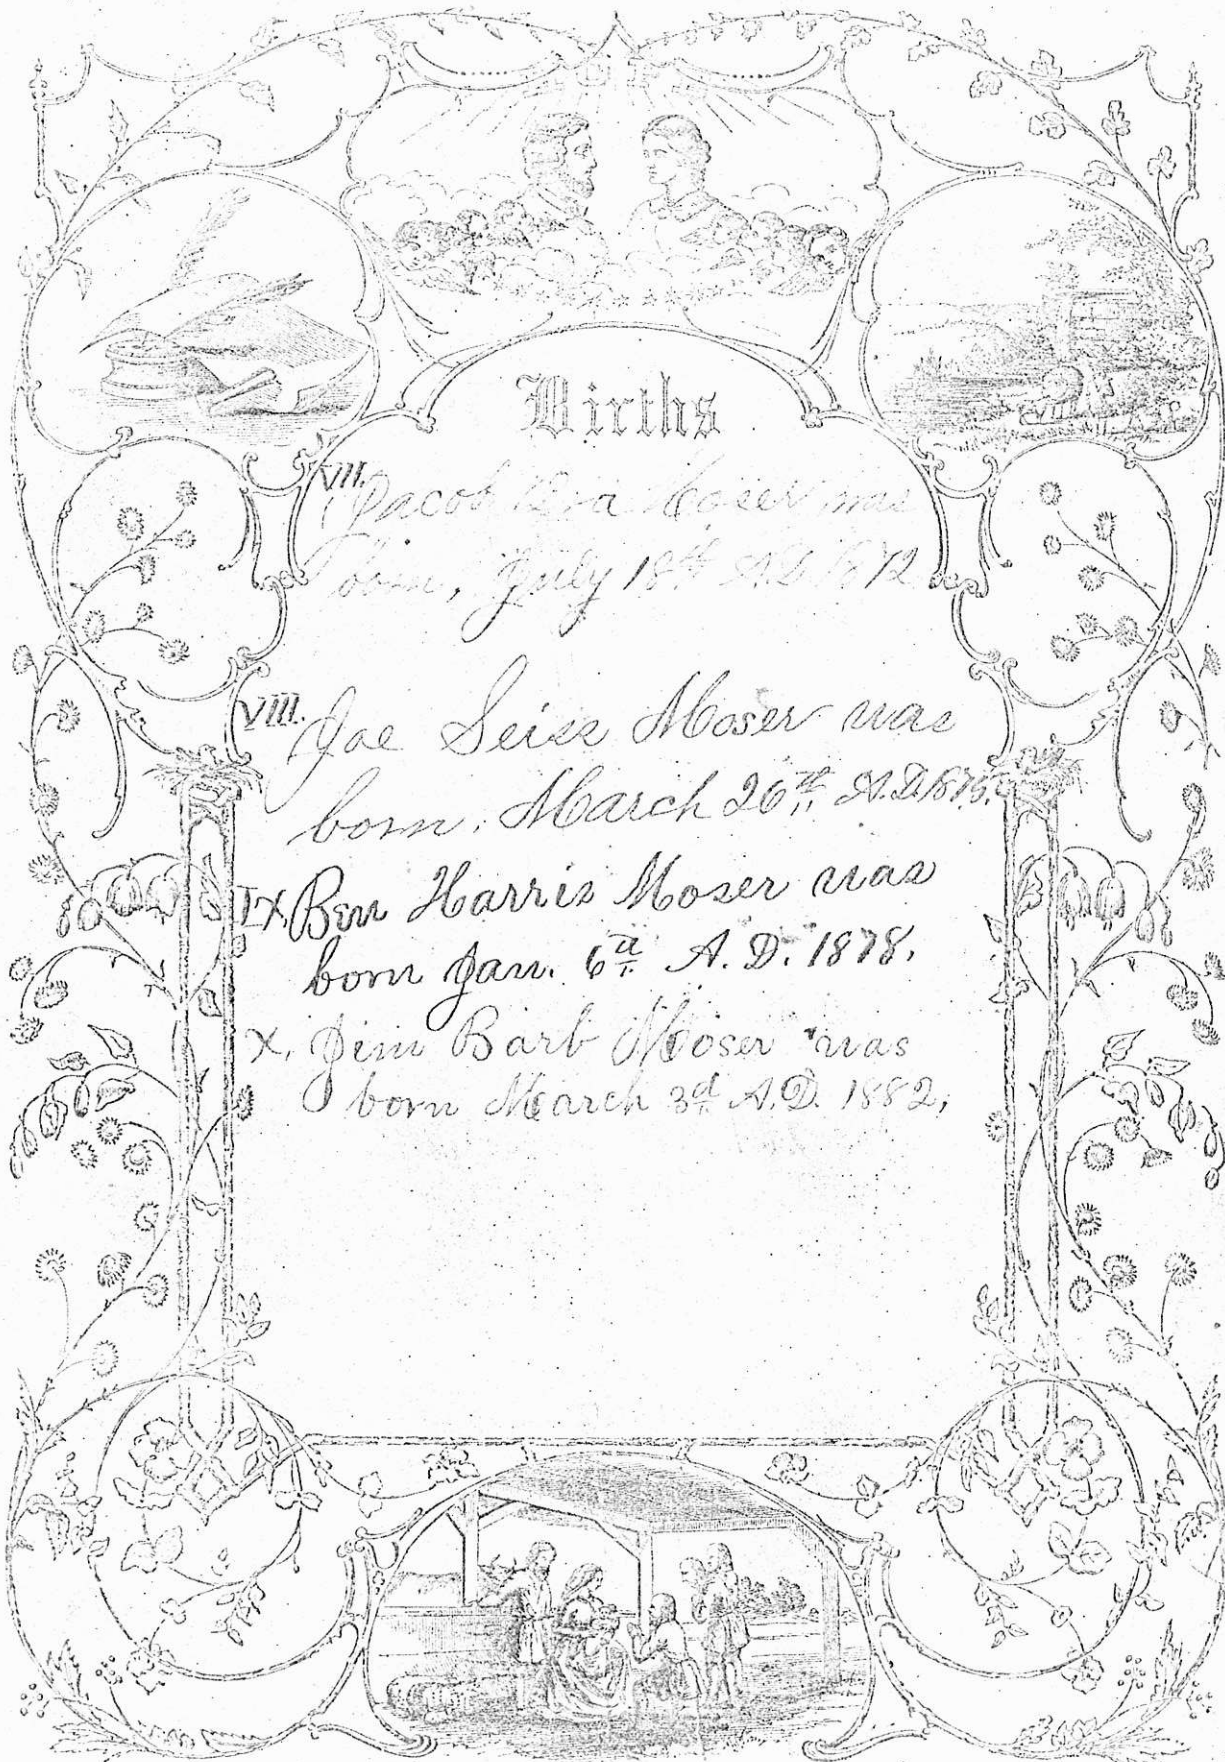 Births
VII. Jacob Moser was
born, July 18th A.D. 1872
VIII. Joe Seiss Moser was
born, March 26th A.D. 1875.
IX. Ben Harris Moser was
born Jan. 6th A. D. 1878.
X. Jim Barb Moser was
born March 3d A.D. 1882,